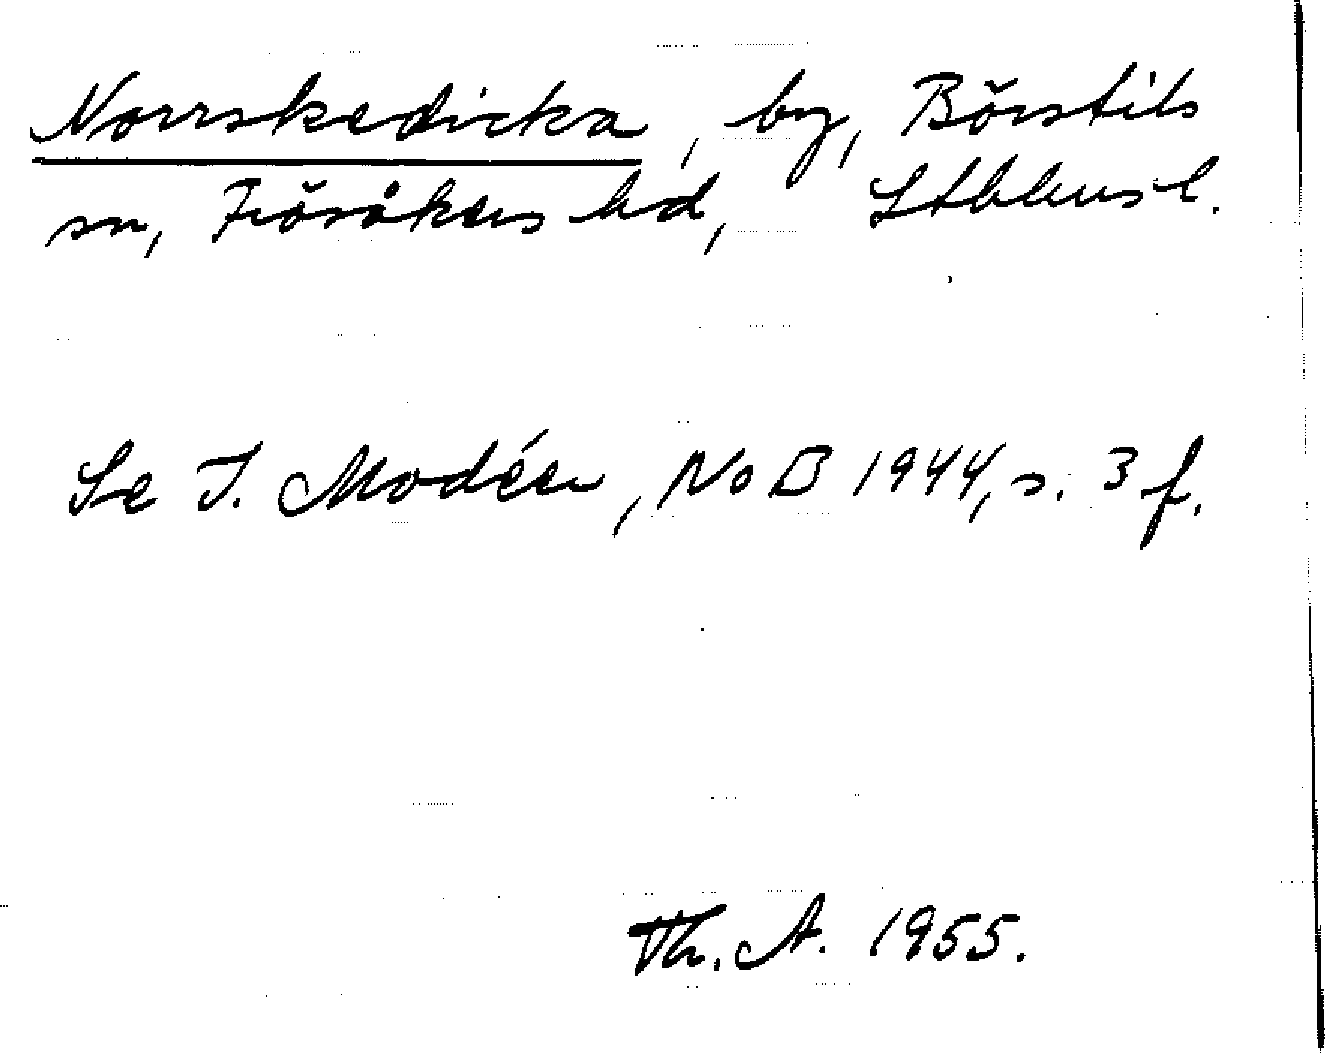 Norrskedicka, by, Börstils
sn, Frösåkers hd, Sthlms l.
Se I. Modéer, NoB 1944, s. 3 f.
Th. A. 1955.